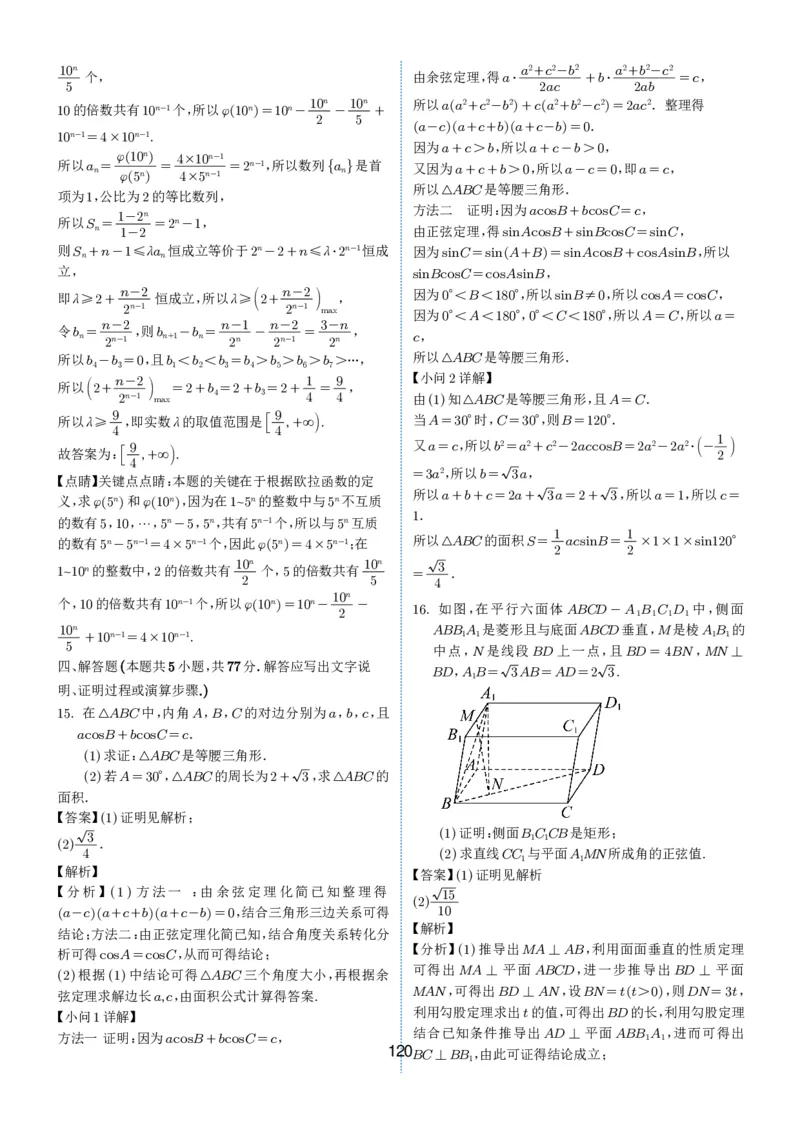 10ⁿ/5 个,
10的倍数共有10ⁿ⁻¹个,所以φ(10ⁿ)=10ⁿ-10ⁿ/2-10ⁿ/5+
10ⁿ⁻¹=4×10ⁿ⁻¹.
所以aₙ=φ(10ⁿ)/φ(5ⁿ)=4×10ⁿ⁻¹/4×5ⁿ⁻¹=2ⁿ⁻¹,所以数列{aₙ}是首
项为1,公比为2的等比数列,
所以Sₙ=1-2ⁿ/1-2=2ⁿ-1,
则Sₙ+n-1≤λaₙ恒成立等价于2ⁿ-2+n≤λ·2ⁿ⁻¹恒成
立,
即λ≥2+n-2/2ⁿ⁻¹ 恒成立,所以λ≥(2+n-2/2ⁿ⁻¹)max,
令bₙ=n-2/2ⁿ⁻¹,则bₙ₊₁-bₙ=n-1/2ⁿ-n-2/2ⁿ⁻¹=3-n/2ⁿ,
所以b₄-b₃=0,且b₁<b₂<b₃=b₄>b₅>b₆>b₇>⋯,
所以(2+n-2/2ⁿ⁻¹)max=2+b₄=2+b₃=2+1/4=9/4,
所以λ≥9/4,即实数λ的取值范围是[9/4,+∞).
故答案为:[9/4,+∞).
【点睛】关键点点睛:本题的关键在于根据欧拉函数的定
义,求φ(5ⁿ)和φ(10ⁿ),因为在1~5ⁿ的整数中与5ⁿ不互质
的数有5,10,⋯,5ⁿ-5,5ⁿ,共有5ⁿ⁻¹个,所以与5ⁿ互质
的数有5ⁿ-5ⁿ⁻¹=4×5ⁿ⁻¹个,因此φ(5ⁿ)=4×5ⁿ⁻¹;在
1~10ⁿ的整数中,2的倍数共有10ⁿ/2 个,5的倍数共有10ⁿ/5
个,10的倍数共有10ⁿ⁻¹个,所以φ(10ⁿ)=10ⁿ-10ⁿ/2-
10ⁿ/5+10ⁿ⁻¹=4×10ⁿ⁻¹.
四、解答题(本题共5小题,共77分.解答应写出文字说
明、证明过程或演算步骤.)
15. 在△ABC中,内角A,B,C的对边分别为a,b,c,且
acosB+bcosC=c.
(1)求证:△ABC是等腰三角形.
(2)若A=30°,△ABC的周长为2+√3,求△ABC的
面积.
【答案】(1)证明见解析;
(2)√3/4.
【解析】
【分析】(1)方法一 :由余弦定理化简已知整理得
(a-c)(a+c+b)(a+c-b)=0,结合三角形三边关系可得
结论;方法二:由正弦定理化简已知,结合角度关系转化分
析可得cosA=cosC,从而可得结论;
(2)根据(1)中结论可得△ABC三个角度大小,再根据余
弦定理求解边长a,c,由面积公式计算得答案.
【小问1详解】
方法一 证明:因为acosB+bcosC=c,
由余弦定理,得a·a²+c²-b²/2ac+b·a²+b²-c²/2ab=c,
所以a(a²+c²-b²)+c(a²+b²-c²)=2ac². 整理得
(a-c)(a+c+b)(a+c-b)=0.
因为a+c>b,所以a+c-b>0,
又因为a+c+b>0,所以a-c=0,即a=c,
所以△ABC是等腰三角形.
方法二 证明:因为acosB+bcosC=c,
由正弦定理,得sinAcosB+sinBcosC=sinC,
因为sinC=sin(A+B)=sinAcosB+cosAsinB,所以
sinBcosC=cosAsinB,
因为0°<B<180°,所以sinB≠0,所以cosA=cosC,
因为0°<A<180°,0°<C<180°,所以A=C,所以a=
c,
所以△ABC是等腰三角形.
【小问2详解】
由(1)知△ABC是等腰三角形,且A=C.
当A=30°时,C=30°,则B=120°.
又a=c,所以b²=a²+c²-2accosB=2a²-2a²·(-1/2)
=3a²,所以b=√3a,
所以a+b+c=2a+√3a=2+√3,所以a=1,所以c=
1.
所以△ABC的面积S=1/2acsinB=1/2×1×1×sin120°
=√3/4.
16. 如图,在平行六面体 ABCD-A₁B₁C₁D₁ 中,侧面
ABB₁A₁是菱形且与底面ABCD垂直,M是棱A₁B₁的
中点,N是线段 BD 上一点,且BD=4BN,MN⊥
BD,A₁B=√3AB=AD=2√3.
A₁
D₁
M
C₁
B₁
A
D
N
B
C
(1)证明:侧面B₁C₁CB是矩形;
(2)求直线CC₁与平面A₁MN所成角的正弦值.
【答案】(1)证明见解析
(2)√15/10
【解析】
【分析】(1)推导出MA⊥AB,利用面面垂直的性质定理
可得出 MA⊥平面 ABCD,进一步推导出 BD⊥平面
MAN,可得出BD⊥AN,设BN=t(t>0),则DN=3t,
利用勾股定理求出t的值,可得出BD的长,利用勾股定理
结合已知条件推导出 AD⊥平面 ABB₁A₁,进而可得出
BC⊥BB₁,由此可证得结论成立;
120